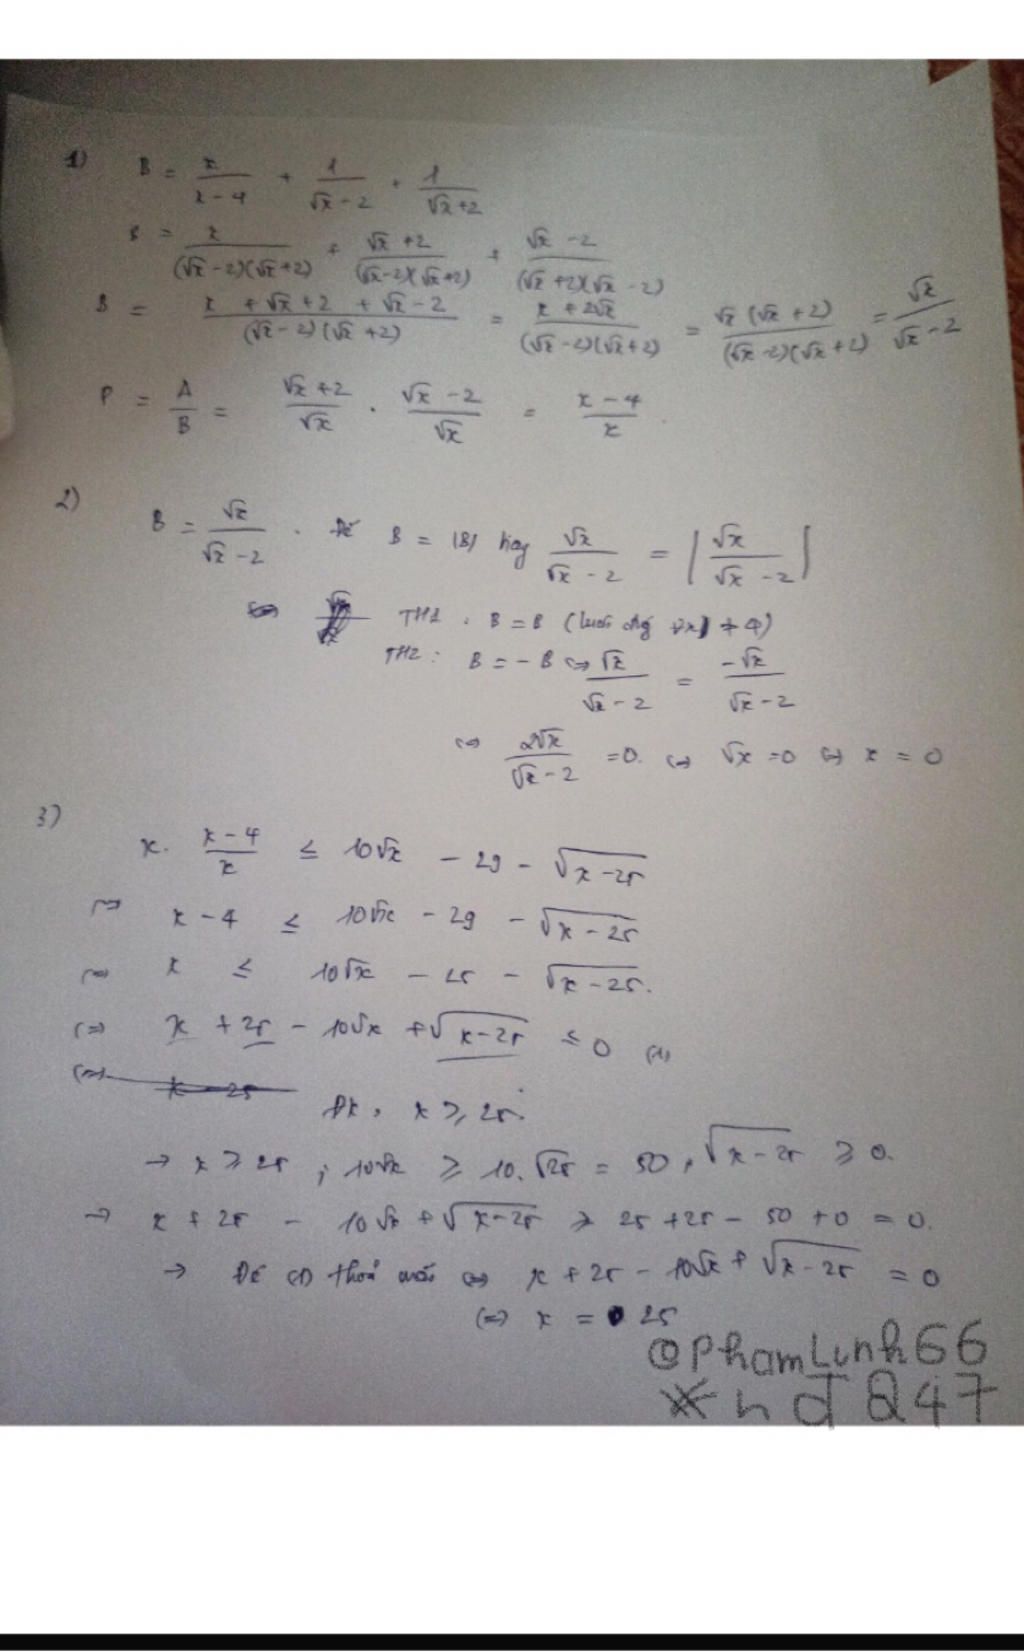 1) B = x/(x-4) + 1/(√x-2) + 1/(√x+2)
B = x/((√x-2)(√x+2)) + (√x+2)/((√x-2)(√x+2)) + (√x-2)/((√x+2)(√x-2))
B = (x+√x+2+√x-2)/((√x-2)(√x+2)) = (x+2√x)/((√x-2)(√x+2)) = √x(√x+2)/((√x-2)(√x+2)) = √x/(√x-2)
P = A/B = (√x+2)/√x . (√x-2)/√x = (x-4)/x .
2) B = √x/(√x-2) . Để B = |B| hay √x/(√x-2) = |√x/(√x-2)|
TH1 : B = B (luôn ≠ 4)
TH2 : B = - B ⇔ √x/(√x-2) = -√x/(√x-2)
⇔ 2√x/(√x-2) = 0. ⇔ √x = 0 ⇔ x = 0
3) x. (x-4)/x ≤ 10√x - 29 - √(x-25)
⇔ x - 4 ≤ 10√x - 29 - √(x-25)
⇔ x ≤ 10√x - 25 - √(x-25).
⇔ x + 25 - 10√x + √(x-25) ≤ 0 (1)
⇔ x - 25
Đk : x ≥ 25
→ x ≥ 25 ; 10√x ≥ 10.√25 = 50 , √(x-25) ≥ 0.
→ x + 25 - 10√x + √(x-25) ≥ 25 + 25 - 50 + 0 = 0.
→ Để (1) thoả mãn ⇔ x + 25 - 10√x + √(x-25) = 0
⇔ x = 25
@PhamLinh66
*hdQ247